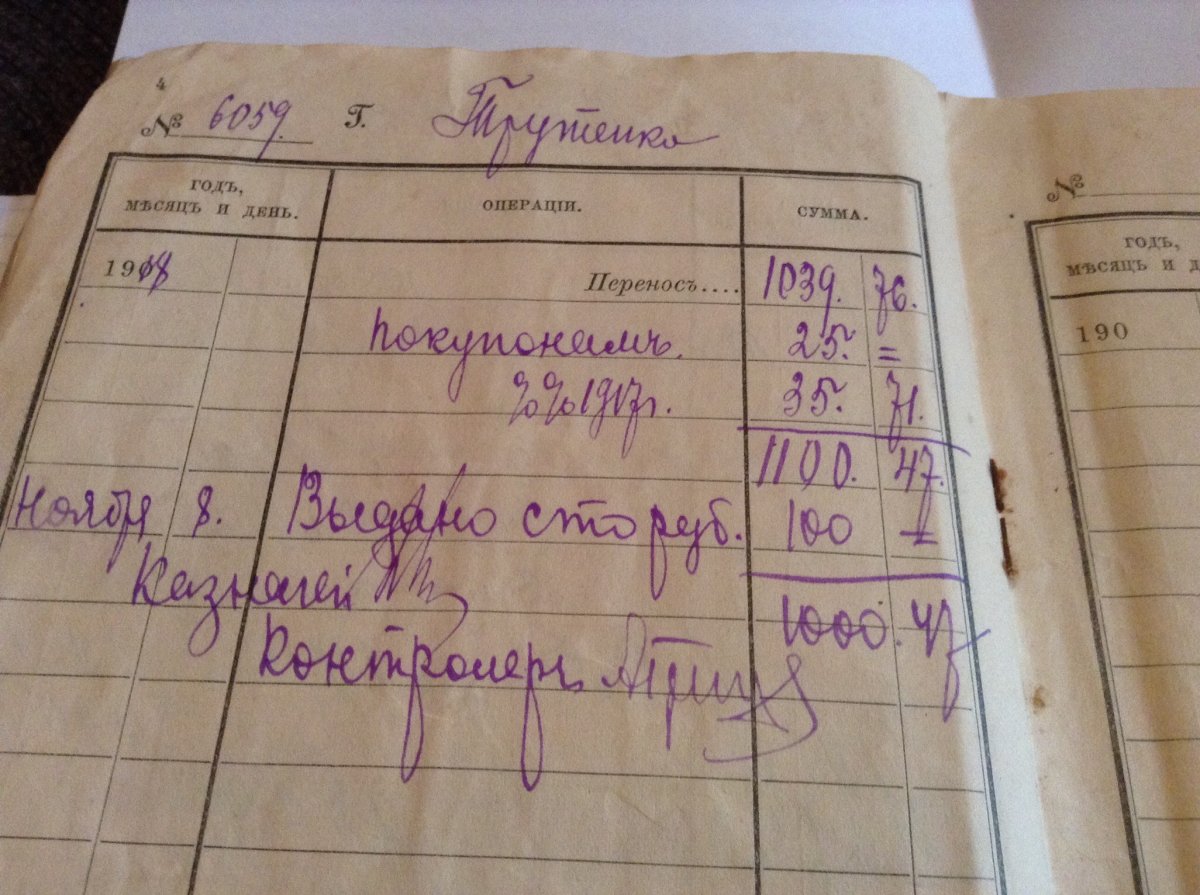 4
№ 6059 Г. Трутенко
ГОДЪ,
МѢСЯЦЪ И ДЕНЬ.
ОПЕРАЦІИ.
СУММА.
1918 Переносъ.... 1039. 76.
По купонамъ. 25. =
%% 1917 г. 35. 71.
1100. 47.
Ноября 8. Выдано сто руб. 100 =
Казначей
1000. 47
Контролеръ
№
ГОДЪ,
МѢСЯЦЪ И Д
190